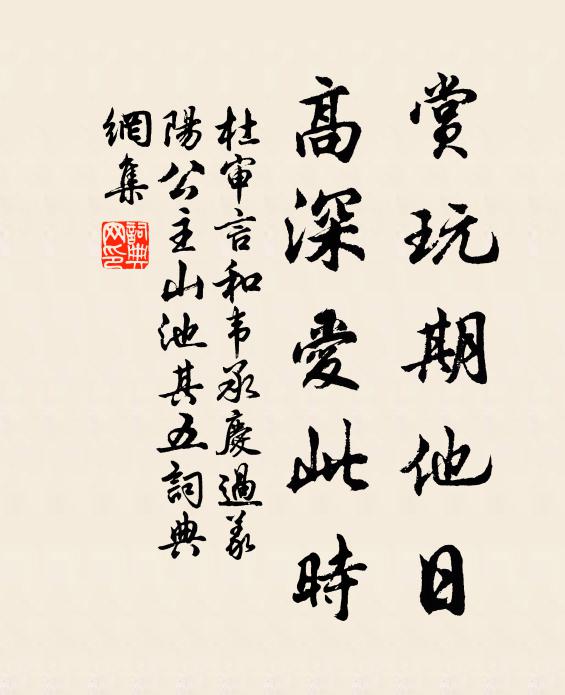 賞玩期他日
高深愛此時
杜审言和韦承慶過義
陽公主山池其五詞典
網集
詞典網印